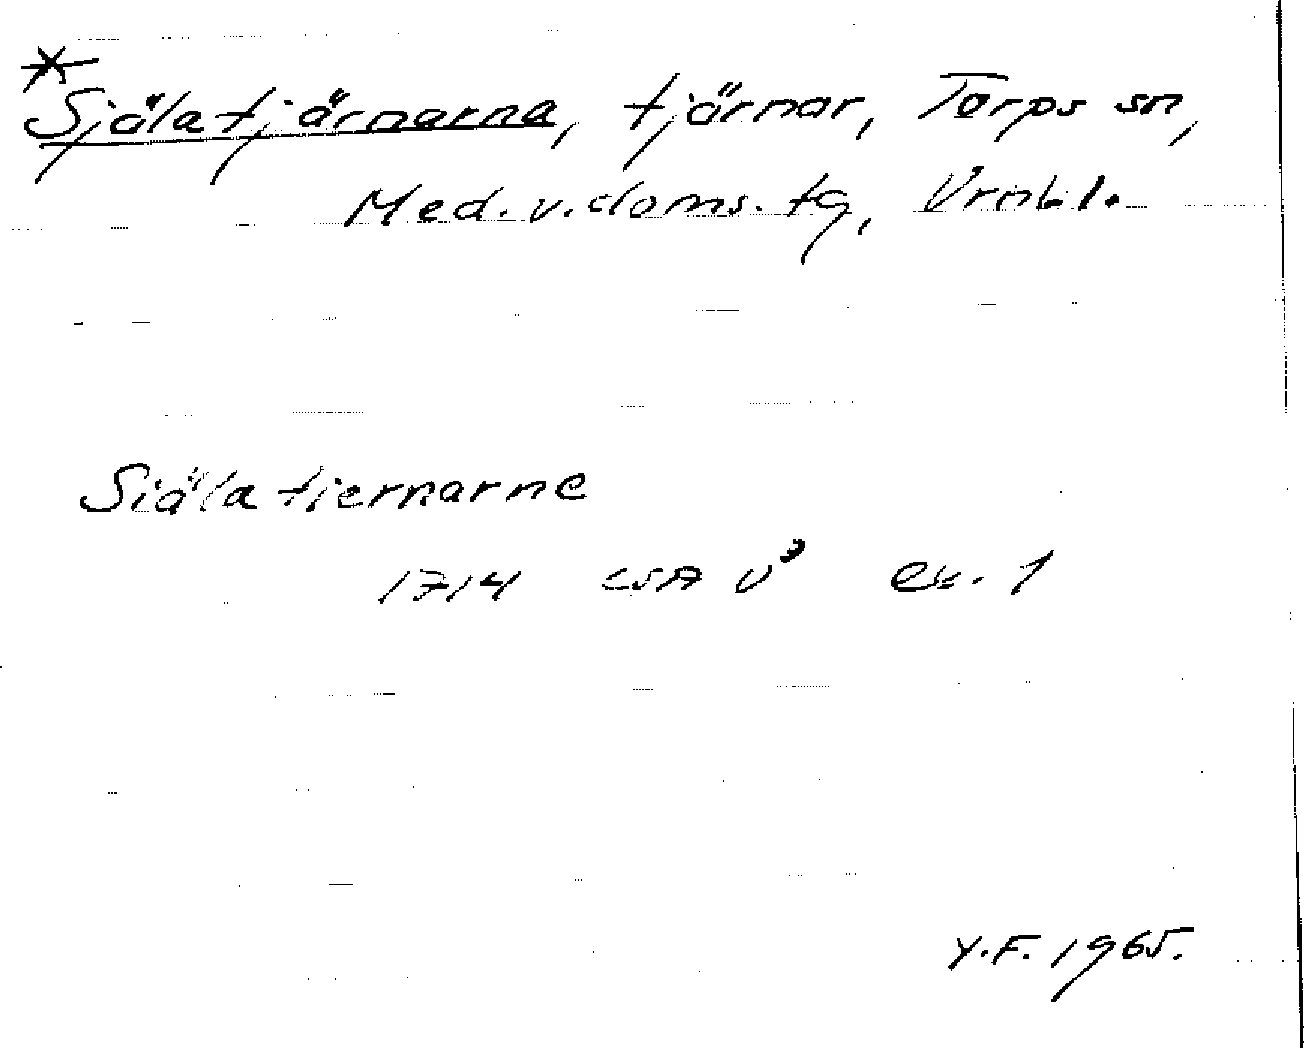 *
Själatjärnarna, tjärnar, Torps sn,
Med. v. doms. tg, Vrml.
Siälatiernarne
1714 LSA V³ ex. 1
Y.F. 1965.